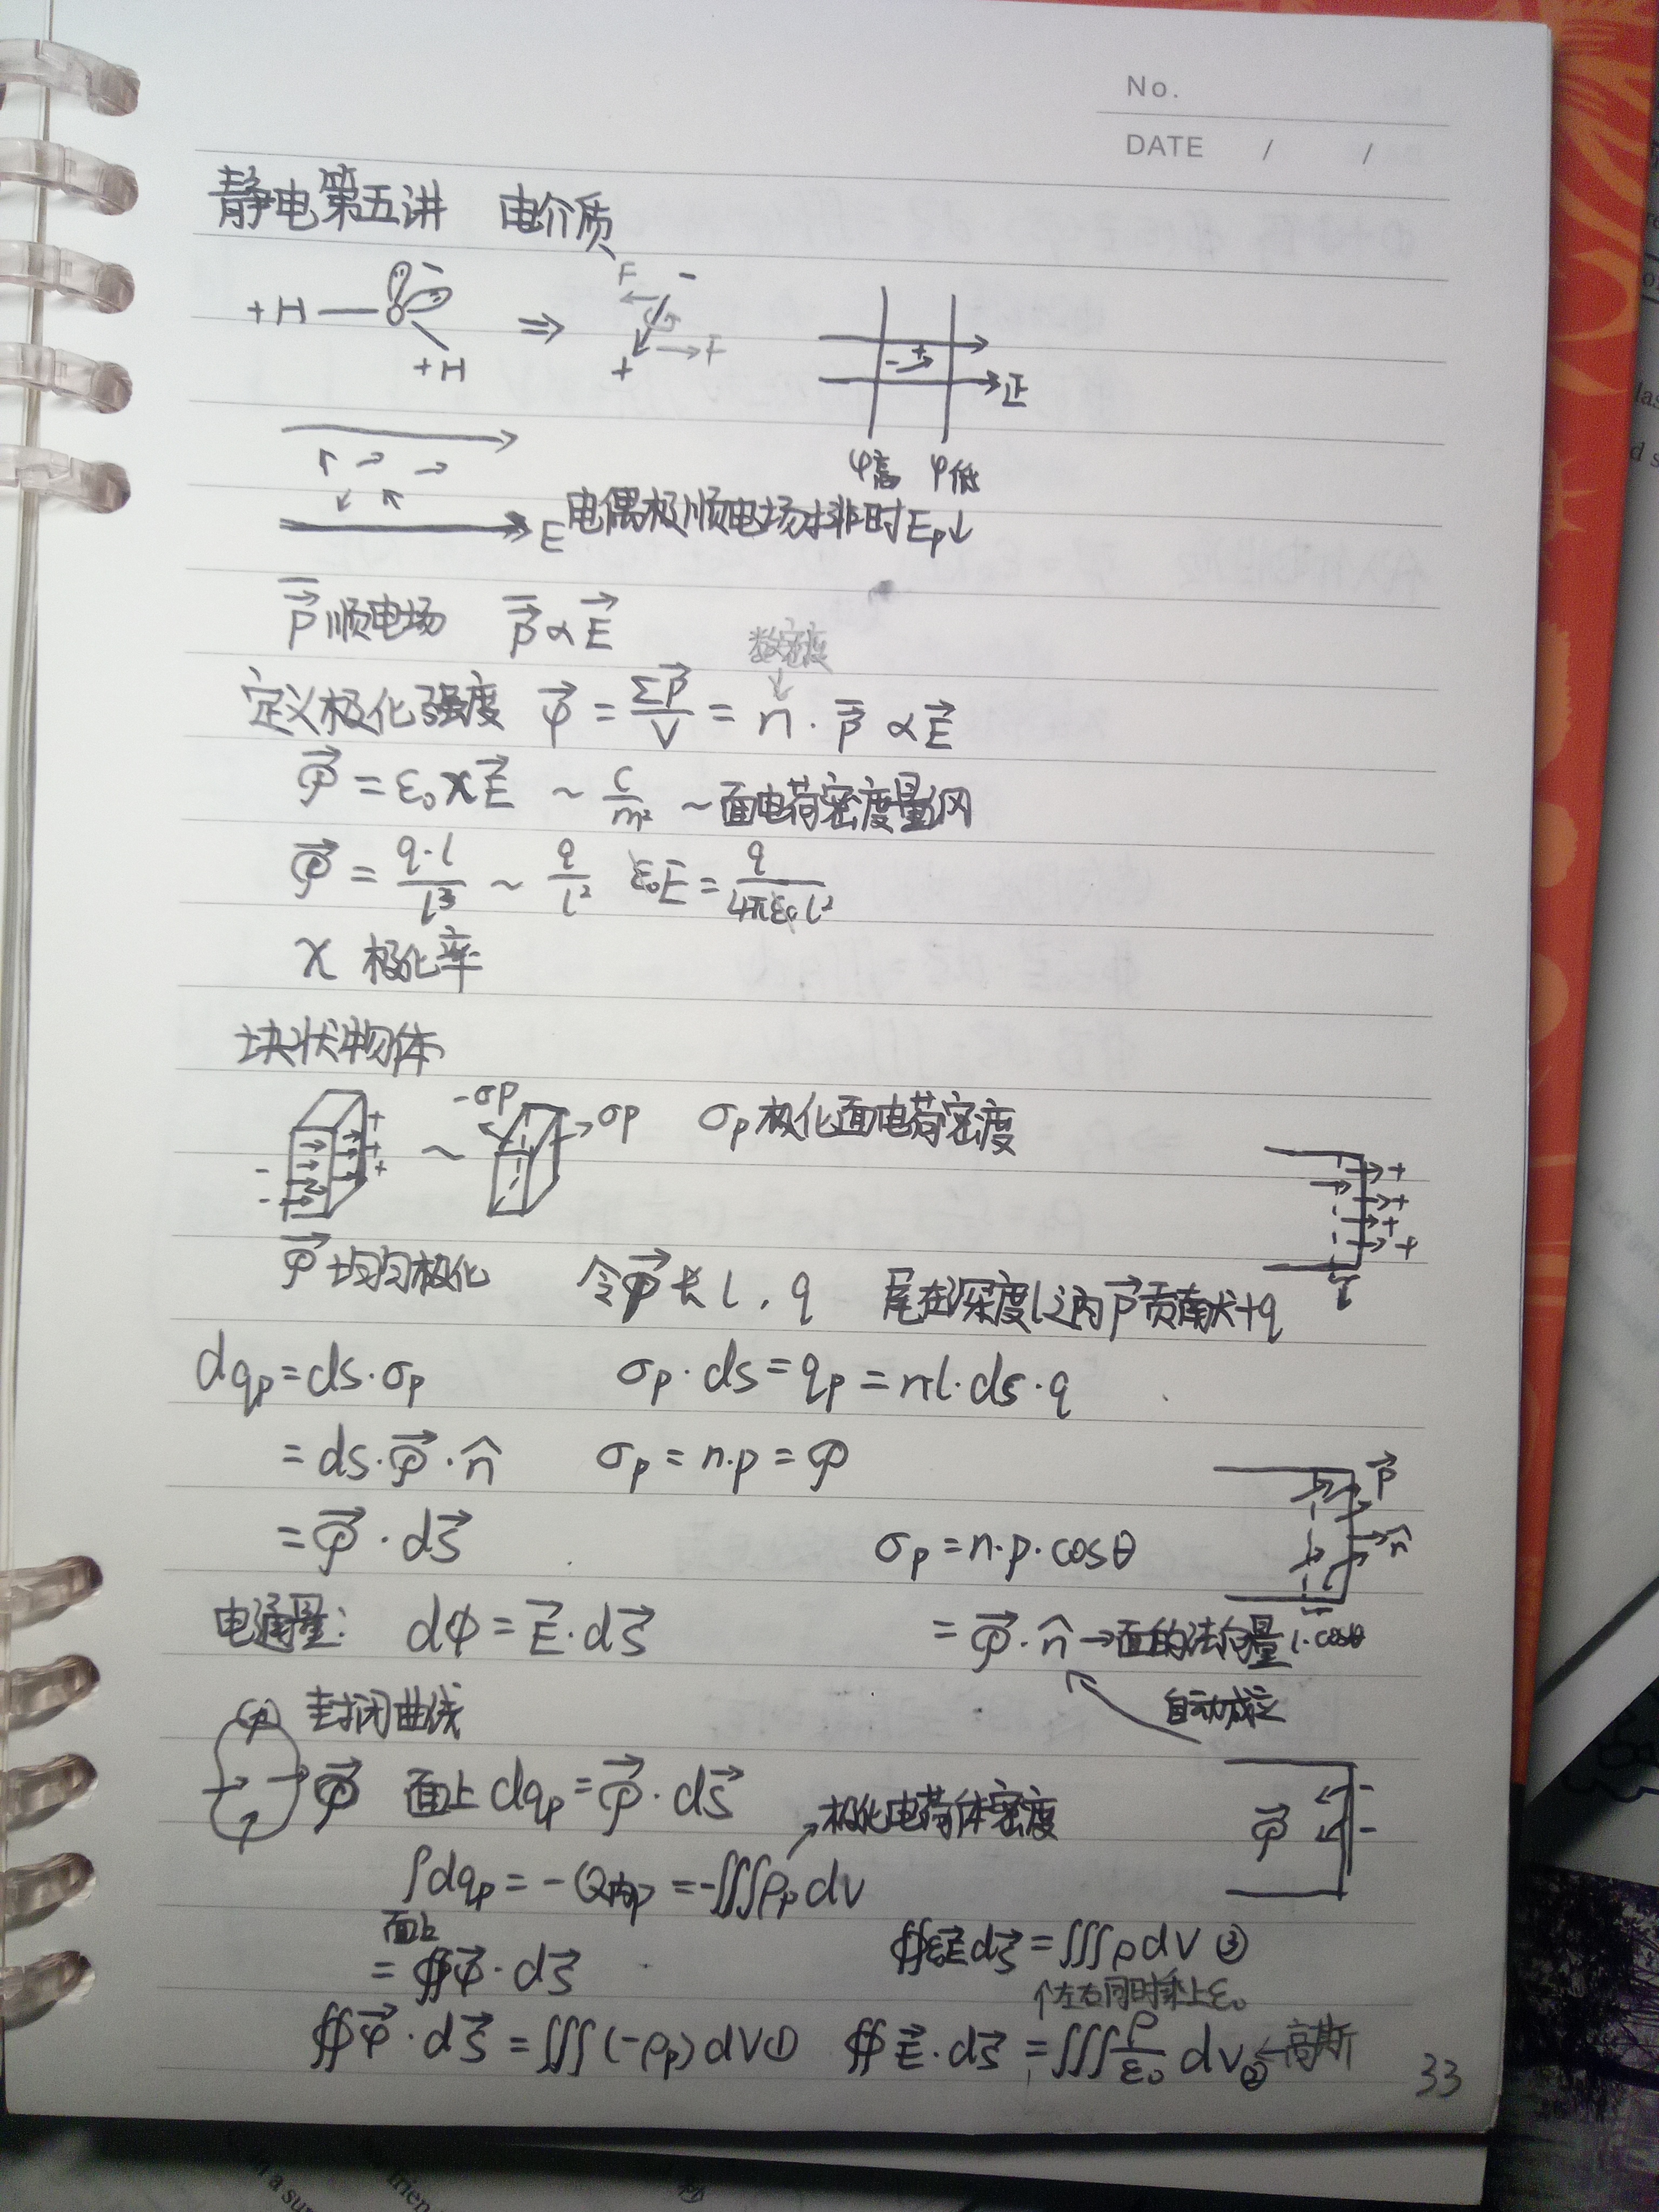 No.
DATE / /
静电第五讲 电介质
+H — O - +H ⇒ F - + F
正
φ高 φ低
E 电偶极顺电场排时Ep↓
p⃗顺电场 p⃗∝E⃗
数密度
定义极化强度 𝒫⃗ = Σp⃗/V = n·p⃗ ∝E⃗
𝒫⃗ = ε₀χE⃗ ~ C/m² ~面电荷密度量纲
𝒫⃗ = q·l/l³ ~ q/l² ε₀E = q/4πε₀l²
χ 极化率
块状物体
-σp σp σp极化面电荷密度
𝒫⃗均匀极化 令p⃗长l,q 尾在深度l之内p⃗贡献+q
l
dqp=ds·σp σp·ds=qp=nl·ds·q
=ds·𝒫⃗·n̂ σp=n·p=𝒫
p⃗
n̂
=𝒫⃗·ds⃗ σp=n·p·cosθ
电通量: dφ=E⃗·ds⃗ =𝒫⃗·n̂→面的法向量 l·cosθ
封闭曲线 自动成立
𝒫⃗ 面上dqp=𝒫⃗·ds⃗ 极化电荷体密度 𝒫⃗
∫dqp=-Q内p=-∭ρp dV
面上
=∯𝒫⃗·ds⃗ ∯ε₀E⃗ds⃗=∭ρdV③
↑左右同时乘上ε₀
∯𝒫⃗·ds⃗=∭(-ρp)dV① ∯E⃗·ds⃗=∭ρ/ε₀ dV②←高斯
33